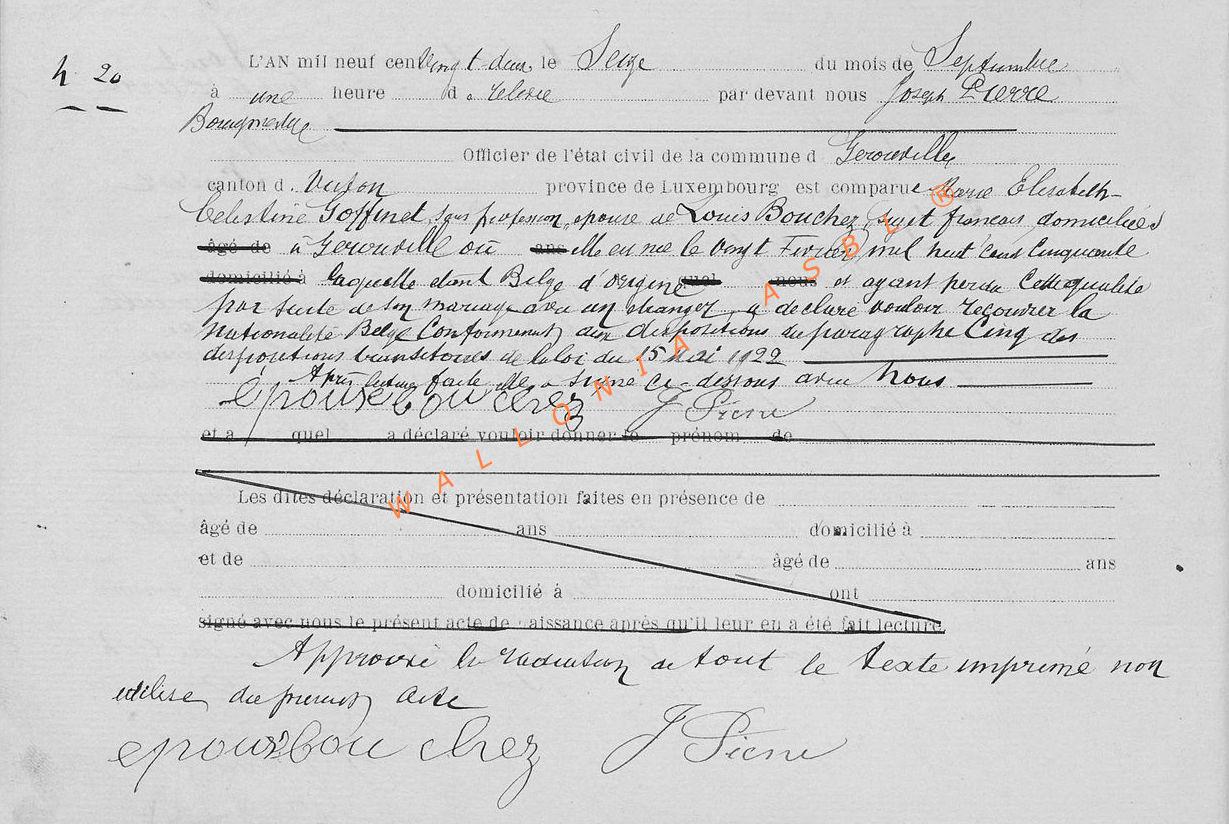 N 20
L'AN mil neuf cent vingt deux le Seize du mois de Septembre
à une heure d e relevée par devant nous Joseph Pierre
Bourgmestre
Officier de l'état civil de la commune d Gerouville
canton d e Virton province de Luxembourg est comparue Marie Elisabeth
Celestine Goffinet, sans profession, epouse de Louis Bouchez, sujet francais, domiciliée
âgé de à Gerouville où ans elle est née le vingt Fevrier mil huit cent cinquante
domicilié à laquelle étant Belge d'origine quel nous et ayant perdu cette qualité
par suite de son mariage avec un étranger, a déclaré vouloir recouvrer la
nationalité Belge conformément aux dispositions du paragraphe cinq des
dispositions transitoires de la loi du 15 mai 1922
Après lecture faite elle a signé ci-dessous avec nous
épouse bouchez J Pierre
et a quel a déclaré vouloir donner le prénom de
Les dites déclaration et présentation faites en présence de
âgé de ans domicilié à
et de âgé de ans
domicilié à ont
signé avec nous le présent acte de naissance après qu'il leur en a été fait lecture
Approuvé la radiation de tout le texte imprimé non
utilisé du présent acte
epouse bouchez J Pierre
WALLONIA ASBL ®